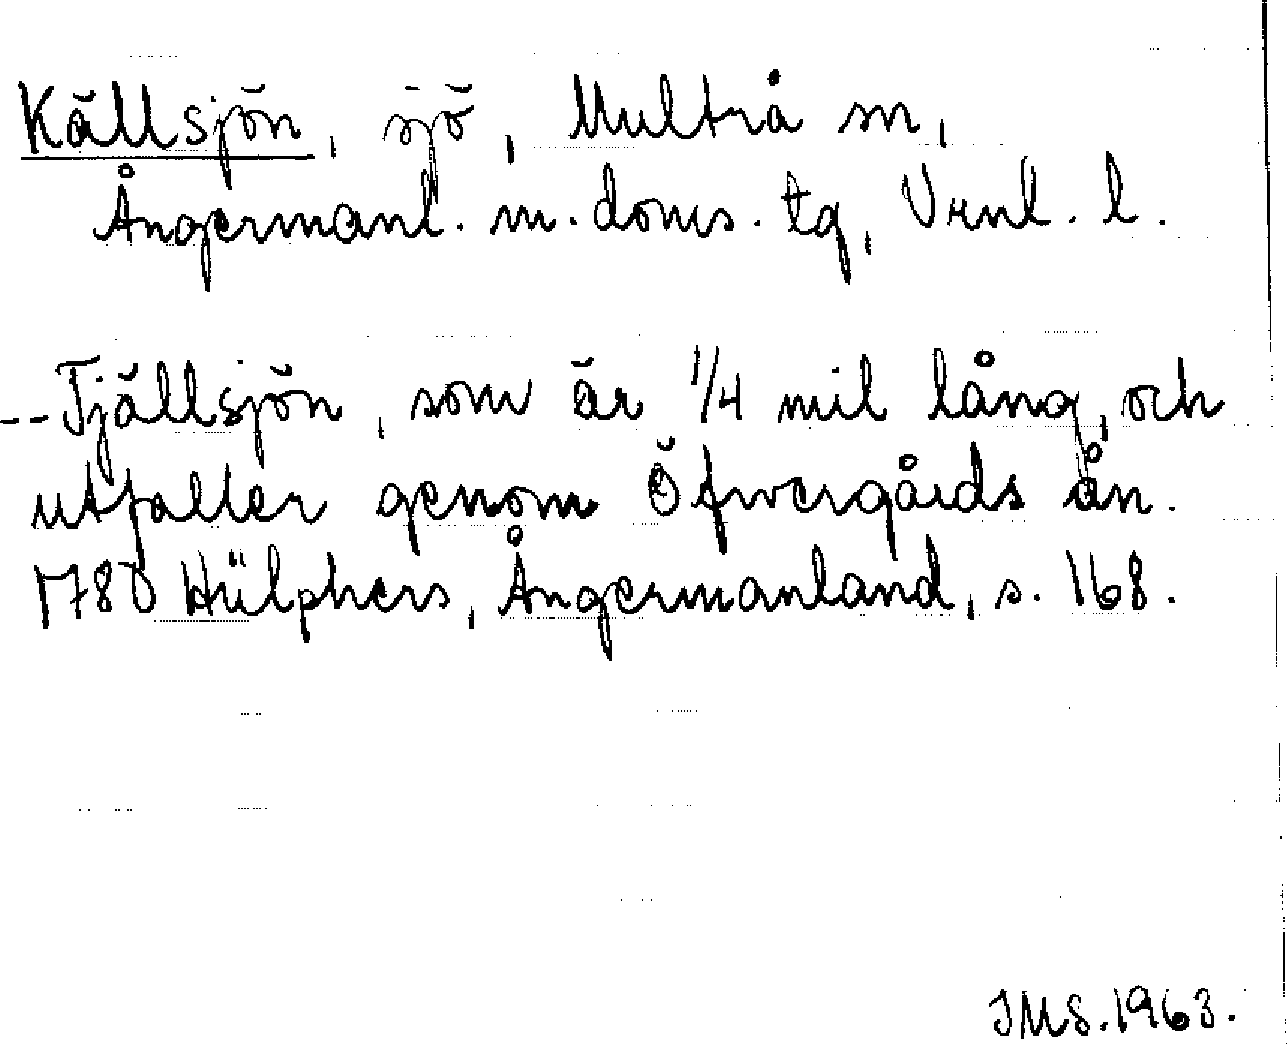 Källsjön, sjö, Multrå sn,
Ångermanl. m. doms. tg, Vrnl. l.
--Tjällsjön, som är 1/4 mil lång, och
utfaller genom Öfwergårds ån.
1780 Hülphers, Ångermanland, s. 168.
IMS. 1963.